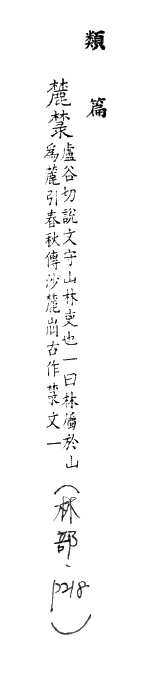 類篇
麓禁盧谷切說文守山林吏也一曰林屬於山
為麓引春秋傳沙麓崩古作禁文一
(林部、p218)